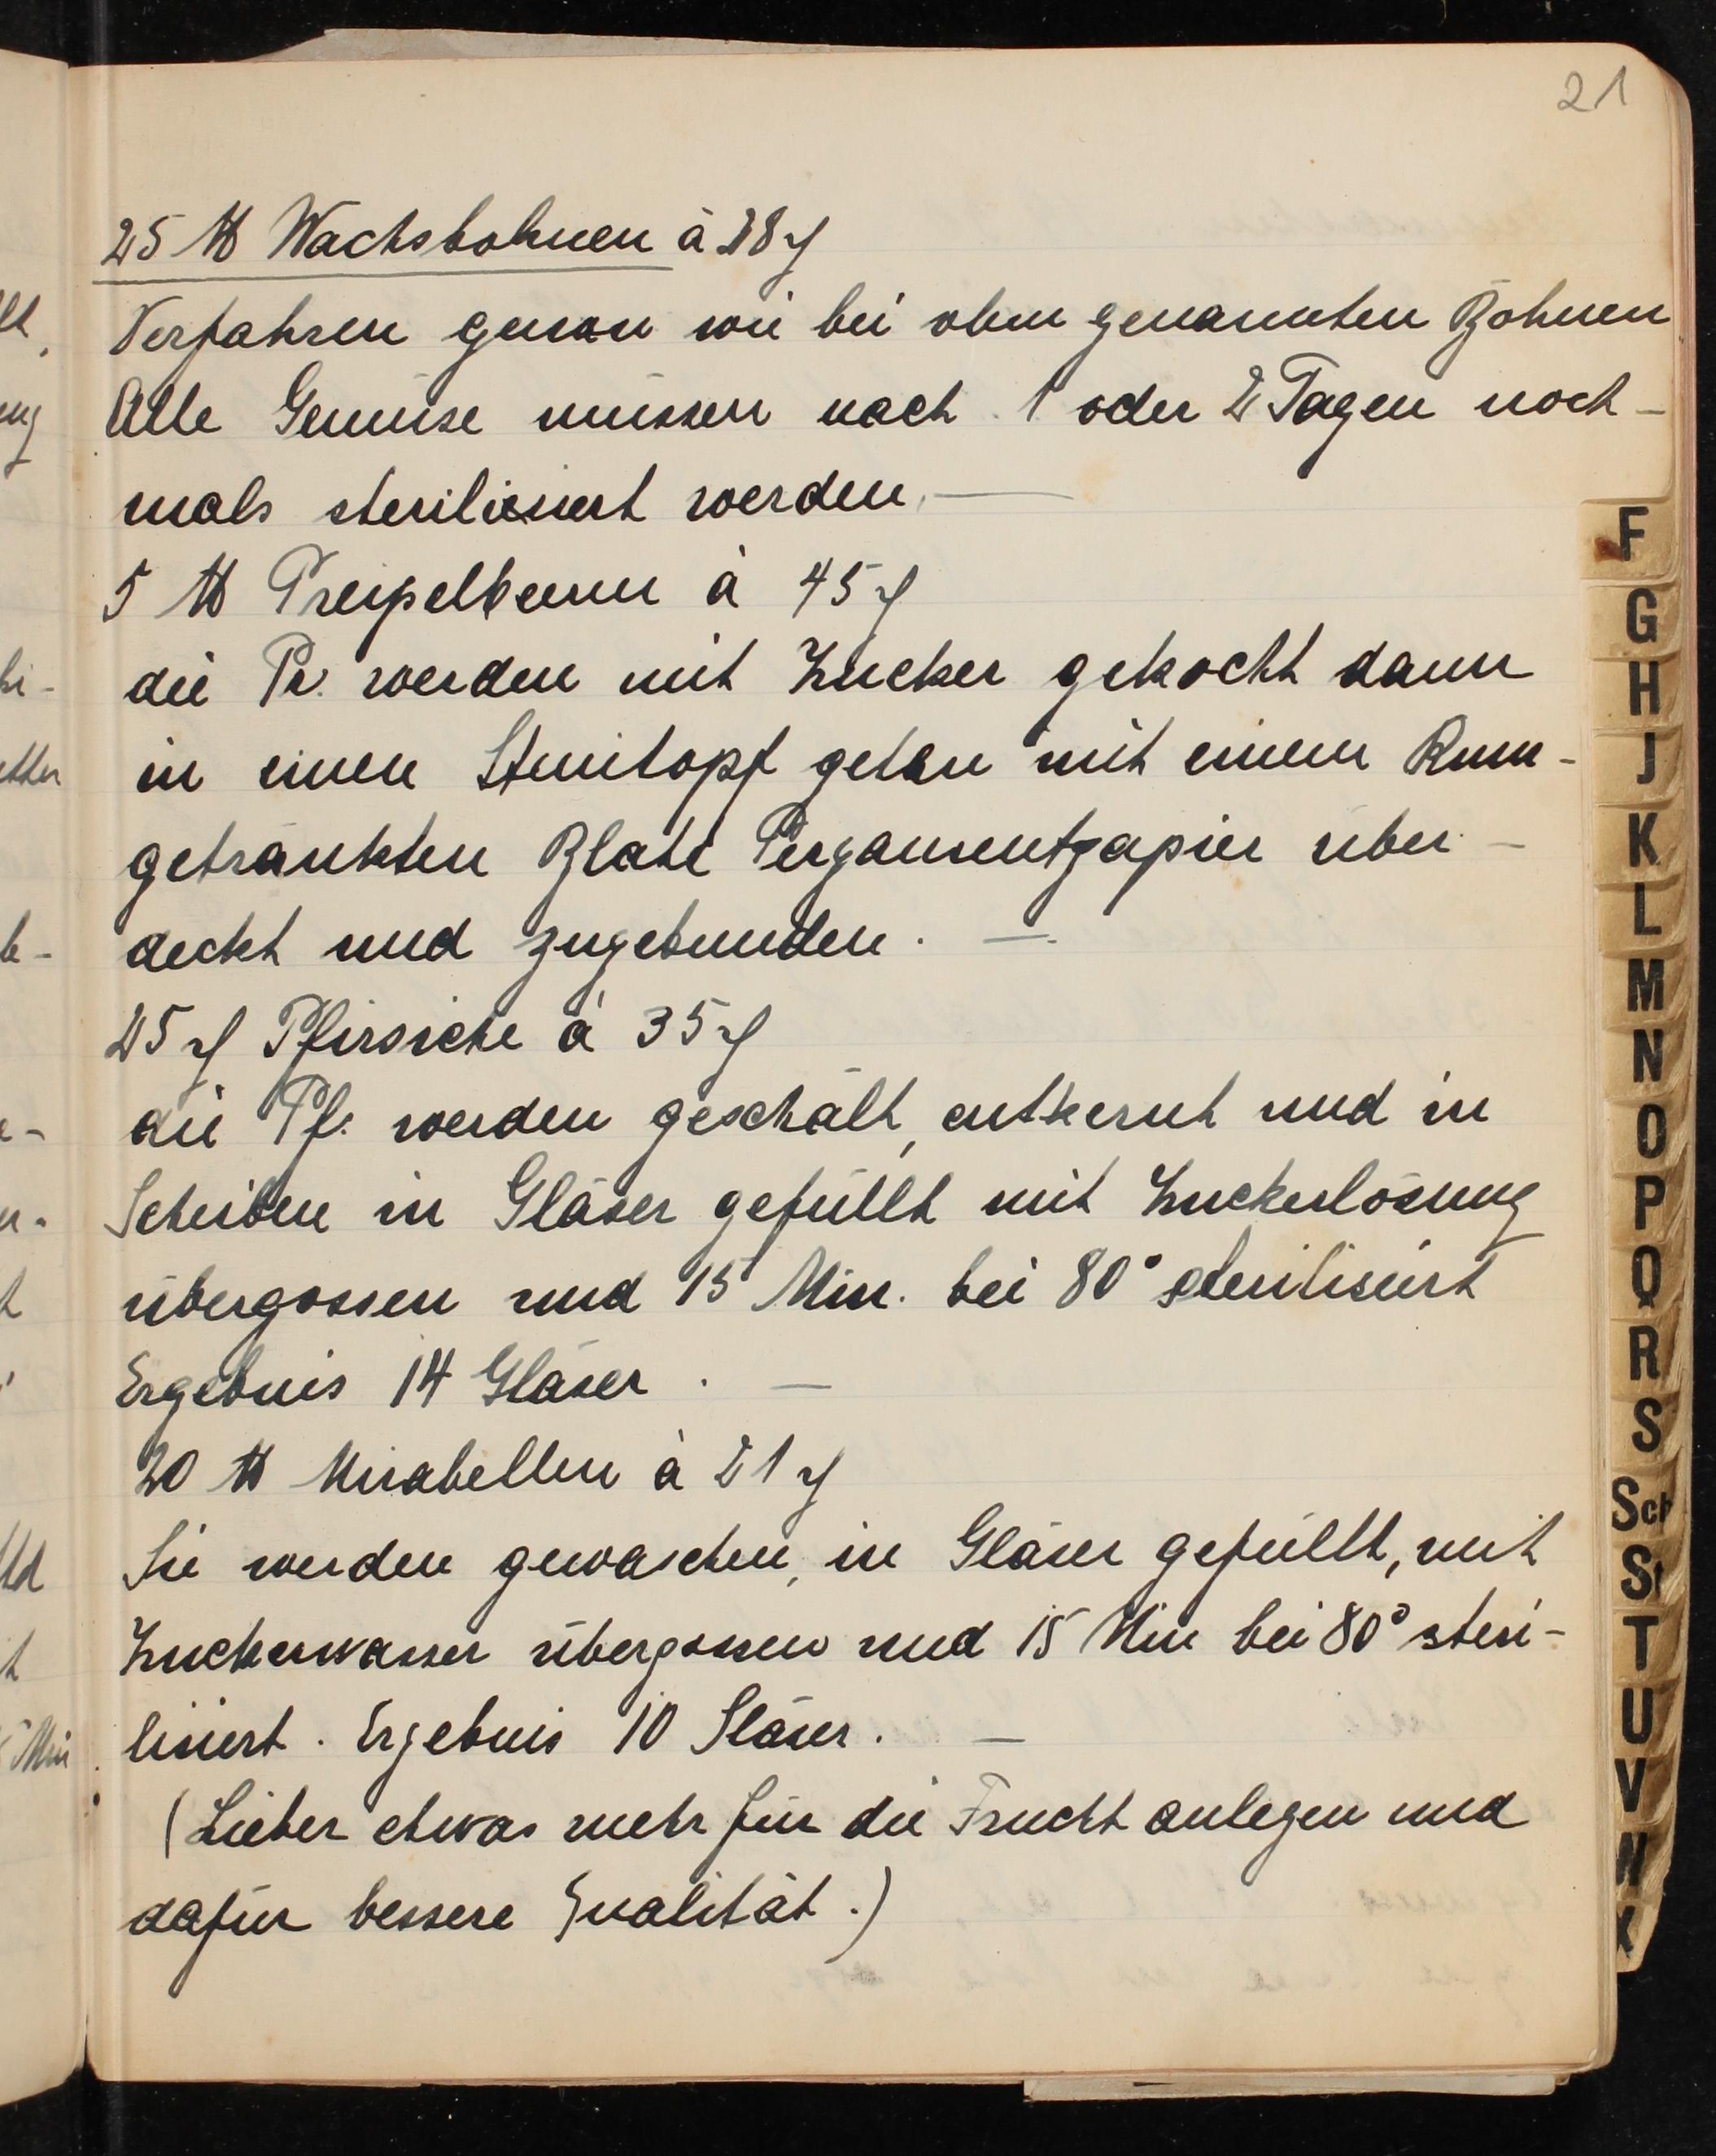 21
25 ℔ Wachsbohnen à 28 ₰
Verfahren genau wie bei oben genannten Bohnen
Alle Gemüse müssen nach 1 oder 2 Tagen noch-
mals sterilisiert werden. —
5 ℔ Preißelbeeren à 45 ₰
die Pr. werden mit Zucker gekocht dann
in einen Steintopf getan mit einem Rum-
getränkten Blatt Pergamentpapier über-
deckt und zugebunden. —
25 ₰ Pfirsiche à 35 ₰
die Pf. werden geschält, entkernt und in
Scheiben in Gläser gefüllt mit Zuckerlösung
übergossen und 15 Min. bei 80° sterilisiert
Ergebnis 14 Gläser. —
20 ℔ Mirabellen à 21 ₰
Sie werden gewaschen, in Gläser gefüllt, mit
Zuckerwasser übergossen und 15 Min bei 80° steri-
lisiert. Ergebnis 10 Gläser. —
(Lieber etwas mehr für die Frucht anlegen und
dafür bessere Qualität.)
F
G
H
J
K
L
M
N
O
P
Q
R
S
Sch
St
T
U
V
W